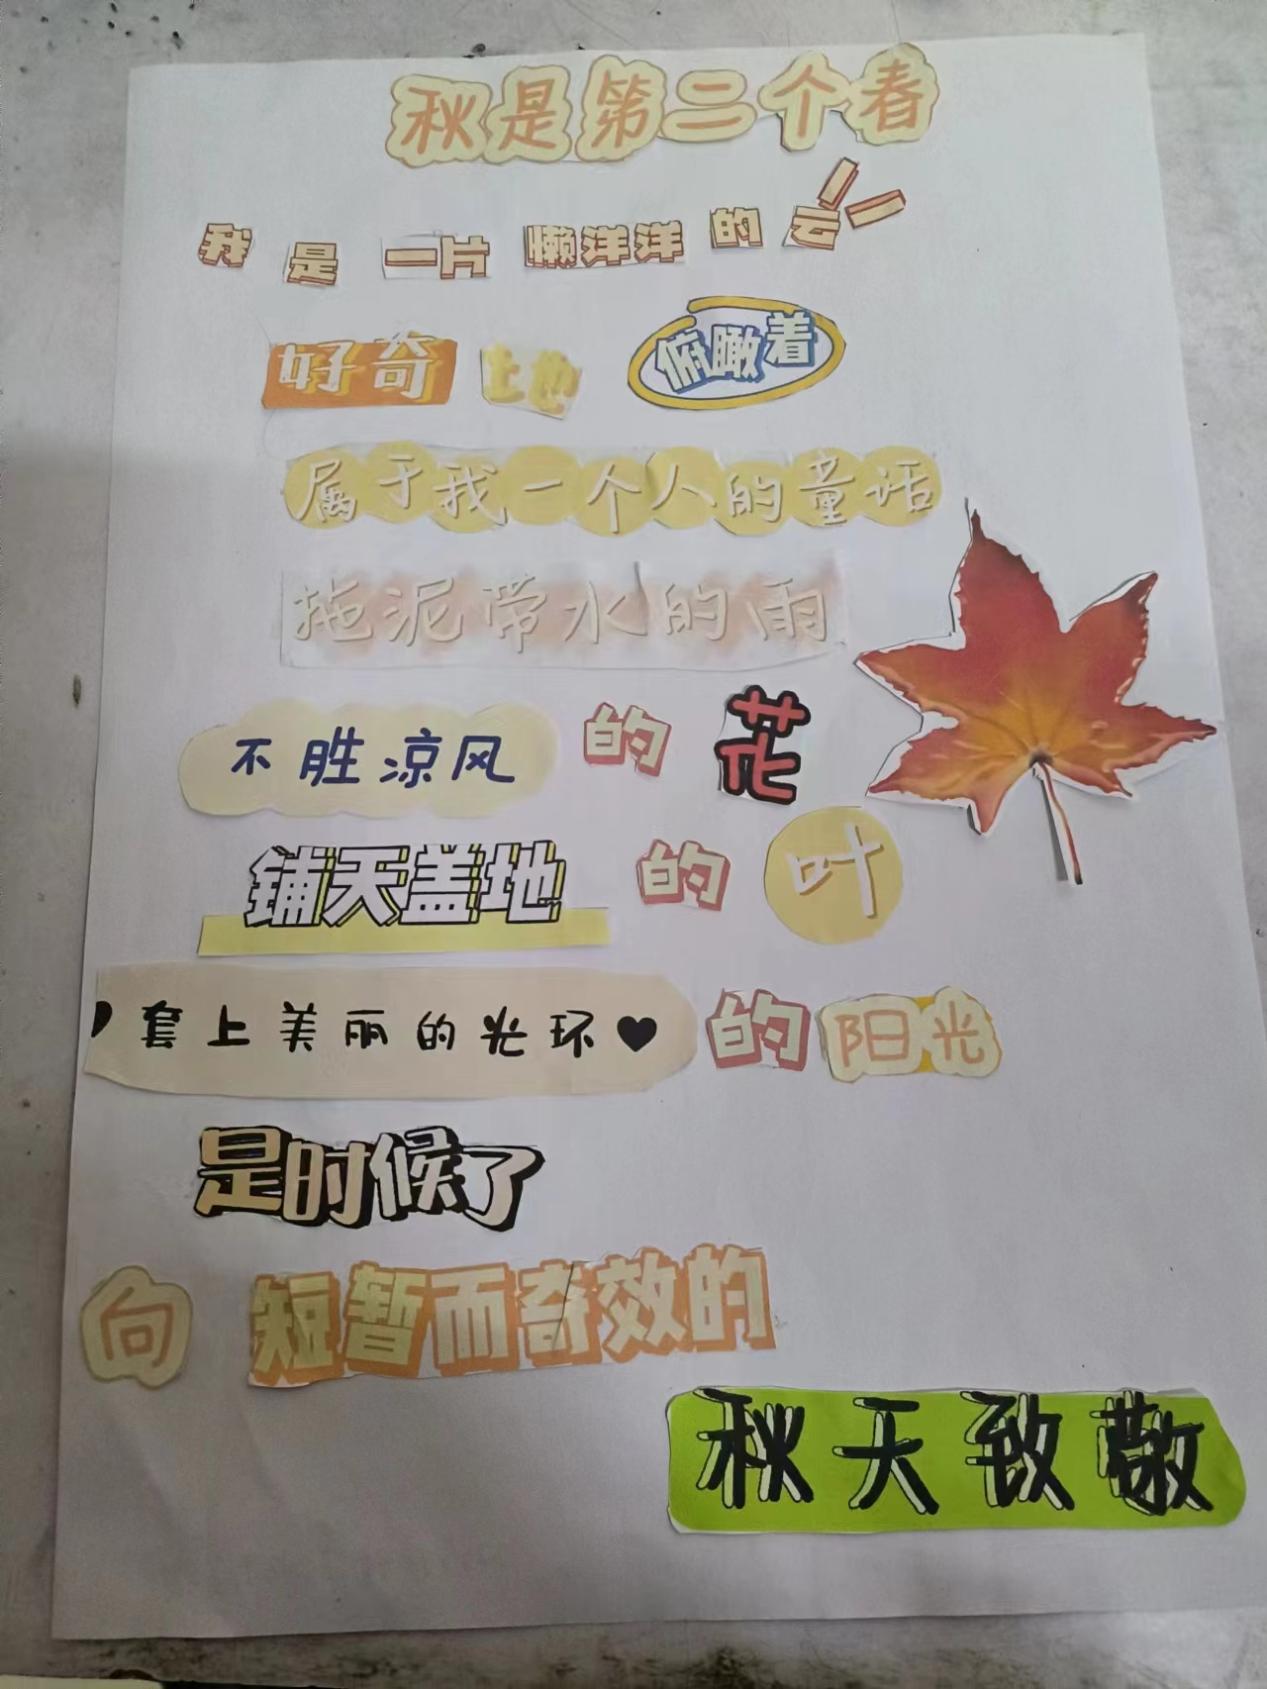 秋是第二个春
我是一片懒洋洋的云
好奇地俯瞰着
属于我一个人的童话
拖泥带水的雨
不胜凉风的花
铺天盖地的叶
套上美丽的光环的阳光
是时候了
向短暂而奇效的
秋天致敬